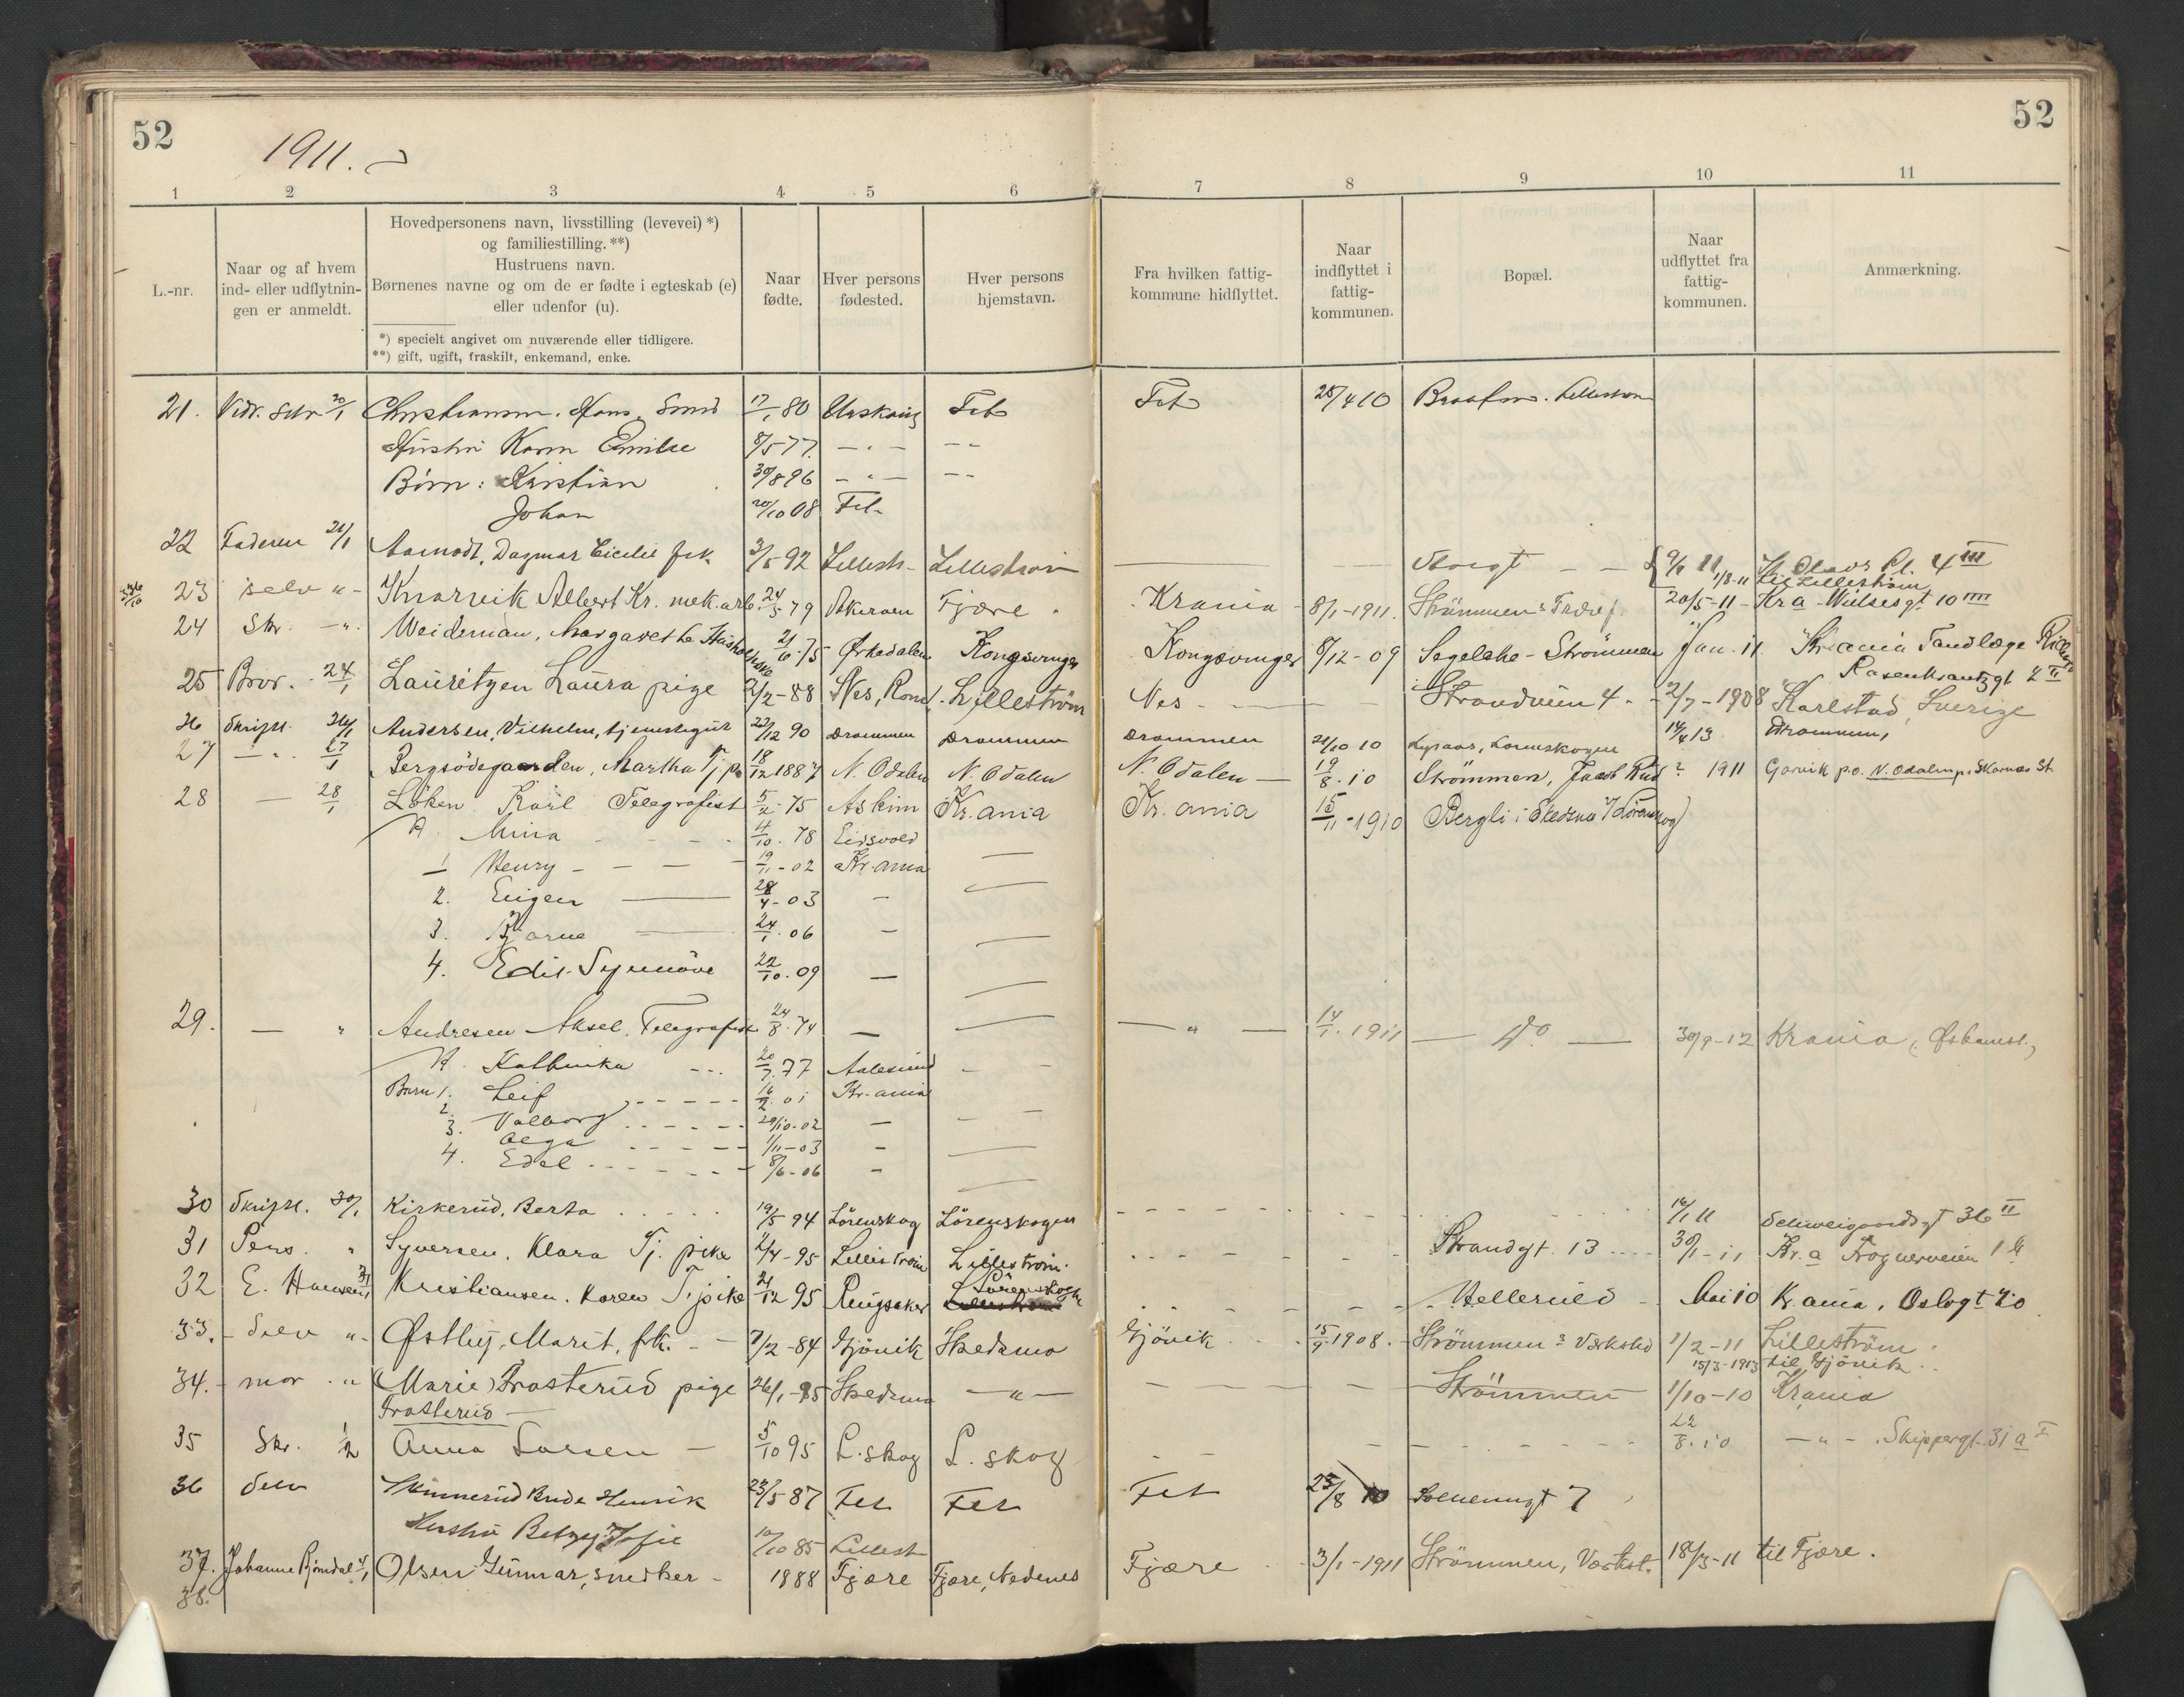 52
52
1911.
1 2 3 4 5 6 7 8 9 10 11
L.-nr.
Naar og af hvem
ind- eller udflytnin-
gen er anmeldt.
Hovedpersonens navn, livsstilling (levevei) *)
og familiestilling. **)
Hustruens navn.
Børnenes navne og om de er fødte i egteskab (e)
eller udenfor (u).
*) specielt angivet om nuværende eller tidligere.
**) gift, ugift, fraskilt, enkemand, enke.
Naar
fødte.
Hver persons
fødested.
Hver persons
hjemstavn.
Fra hvilken fattig-
kommune hidflyttet.
Naar
indflyttet i
fattig-
kommunen.
Bopæl.
Naar
udflyttet fra
fattig-
kommunen.
Anmærkning.
21. 20/1 Christiansen, Hans, Smed 17/1 80 Urskoug Fet Fet 28/4 10
Hustru Karen Emilie 8/5 77. — " — — "
Børn: Kristian 30/8 96 — " — — "
Johan 20/10 08 Fet
22 Faderen 21/1 Aamodt, Dagmar Cicilie frk. 3/5 92 Lillestr- Lillestrøm — — Storgt — — 9/1 11 St. Olavs Pl. 4 III
1/8-11 til Lillestrøm
23 selv " - Knarvik Albert Kr. mek. arb. 24/5 79 Fjære Krania 8/1-1911. Strømmens Træsl. 20/5-11 - Kra Nielsesgt 10 IIII
24 Skr. — " Weideman, Margarethe 21/6 75 Ørkedalen Kongsvinger Kongsvinger 8/12-09 Segelcke - Strømmen Jan. 11 Kr.ania Tandlæge
Rosenkrantzgt 2 II
25 Bror. 24/1 Lauritzen Laura pige 2/2-88 Nes, Rom. Lillestrøm Nes — Strandveien 4 - 2/7-1908 Karlstad, Sverige
26 Skriftl. 26/1 Andersen, Vilhelm, tjenestegut 23/12 90 Drammen Drammen Drammen 21/10 10 Lørenskogen 14/4 13 Drammen,
27 — " 27/1 Bergsødegaarden, Martha Tj.p. 18/12 1887 N. Odalen N. Odalen N. Odalen — 19/8.10 Strømmen, Jacob Rud ? 1911 Garvik p.o. N. Odalen p. Skarnes St.
28 — 28/1 Løken Karl Telegrafist 5/2 75 Askim Kr.ania Kr.ania 15/11-1910 Bergli i Skedsmo (Lørenskog)
H. Mina 4/10. 78 Eidsvold
1 Henry - — — 19/11-02 Kr.ania —
2. Eugen —— 28/4-03 - —
3. Bjarne —— 24/1. 06 - —
4. Edis Synnøve 22/10. 09 — —
29. — " Andresen Aksel. Telegrafist 24/8. 74 — — — " — 14/1. 1911 — Do — 30/9-12 Krania
H. Kathinka --- 20/7. 77 Aalesund - -
Barn 1. Leif - - - - - 16/2. 01 Kr.ania —
2. Valborg - - - - - 29/10-02 — - -
3. Olga - - - - - 1/11-03 - —
4. Edel - - - - - 8/6-06 - —
30 Skriftl. 30/1 Kirkerud, Berta 19/5 94 Lørenskog Lørenskogen 16/1 11 Schweigaardsgt 36 II
31 Pens. " Syversen, Klara Tj. pike 2/4-95 Lillestrøm Lillestrøm. Strandgt. 13 30/1-11 Kr.a Frognerveien
32 E. Hansen 31/1 Kristiansen. Karen T. pike 21/12 95 Ringsaker Lørenskogen Hellerud - Mai 10 Kr.ania, Oslogt 20
33. - Selv " - Østby, Marit, frk. - 7/2-84 Gjövik Skedsmo Gjövik 15/9.1908. Strømmens Værksted 1/2-11 Lillestrøm
15/3-1913 til Gjövik
34. - mor - " (Marie) Frosterud pige 26/1-95 Skedsmo — " — — — Strømmen 1/10-10 Krania
Frosterud —
35 Skr. 1/2 Anna Larsen — 5/10 95 L.skog L.skog - - 22/8.10 — " — Skippergt. 31 a I
36 Selv Henrik 23/5 87 Fet Fet Fet 25/8 10 7
Hustru Betzy Sofie 10/10 85 Lillest
37. Johanne 4/1 Olsen Gunnar, snedker - 1888 Fjære Fjære, Nedenes Fjære 3/1-1911 Strømmen, Værkst. 18/3-11 til Fjære.
38.